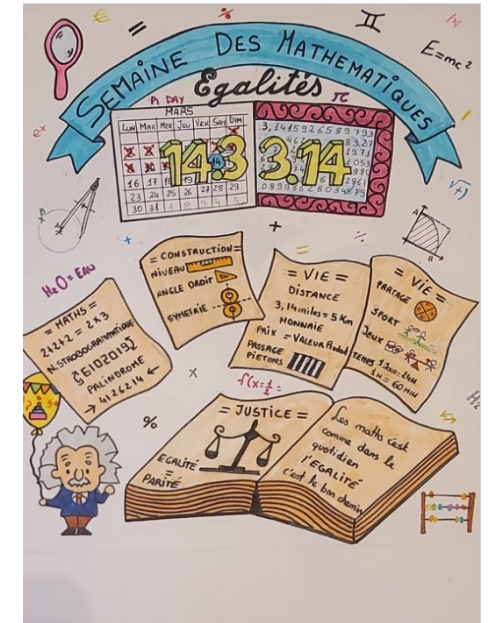 SEMAINE DES MATHEMATIQUES
Egalités
E=mc²
PI DAY
π
MARS
LUN MAR MER JEU VEN SAM DIM
14.3
3.14
16 17 18 19
23 24 25 26 27 28 29
30 31 1 2 3 4 5
3,1415926535 8979 3
eˣ
√π
A
B
H₂O = EAU
= MATHS =
2+2+2 = 2x3
N. STROBOGRAMMATIQUE
PALINDROME
→ 4126214 ←
= CONSTRUCTION =
NIVEAU
ANGLE DROIT
SYMETRIE
= VIE =
DISTANCE
3,14 miles = 5 Km
MONNAIE
PRIX = VALEUR Produit
PASSAGE
PIETONS
= VIE =
PARTAGE
SPORT
JEUX
TEMPS 1 Jour = 24H
1H = 60 MIN
%
= JUSTICE =
EGALITE
=
PARITÉ
Les maths c'est
comme dans le
quotidien
l'EGALITÉ
c'est le bon chemin